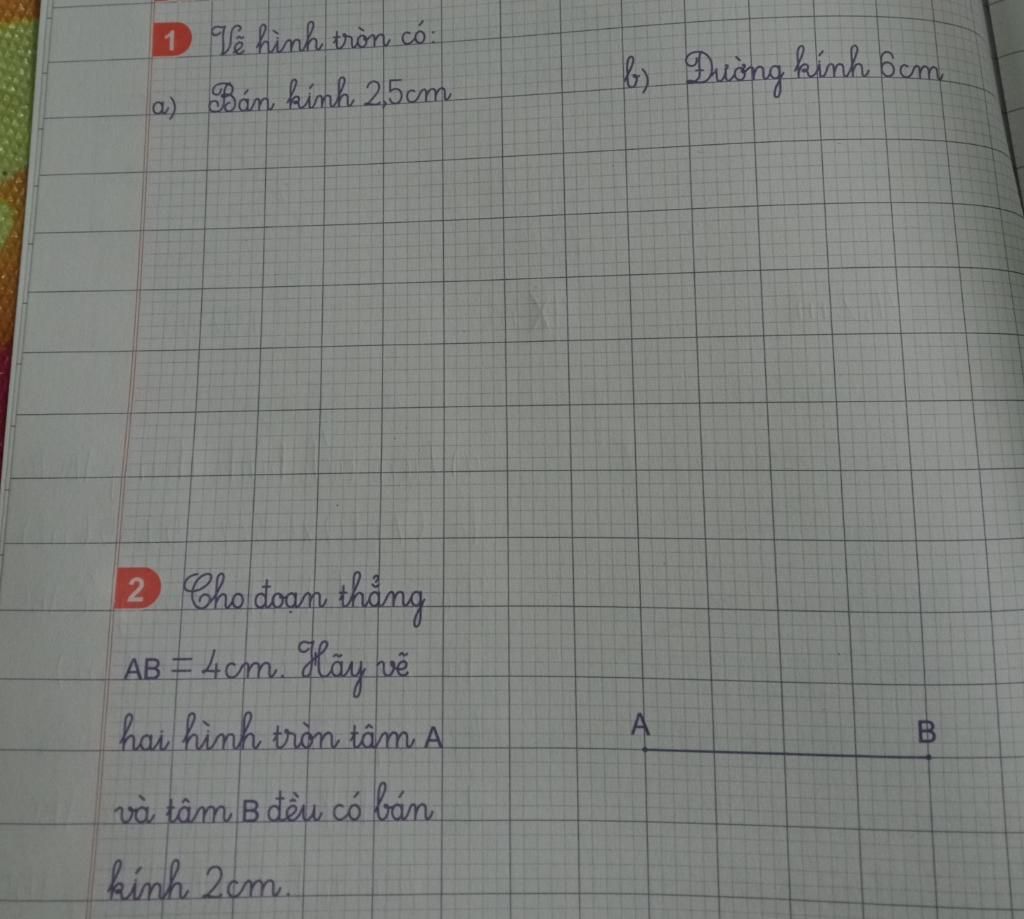 1 Vẽ hình tròn có:
a) Bán kính 2,5cm
b) Đường kính 6cm
2 Cho đoạn thẳng
AB = 4cm. Hãy vẽ
hai hình tròn tâm A
và tâm B đều có bán
kính 2cm.
A B